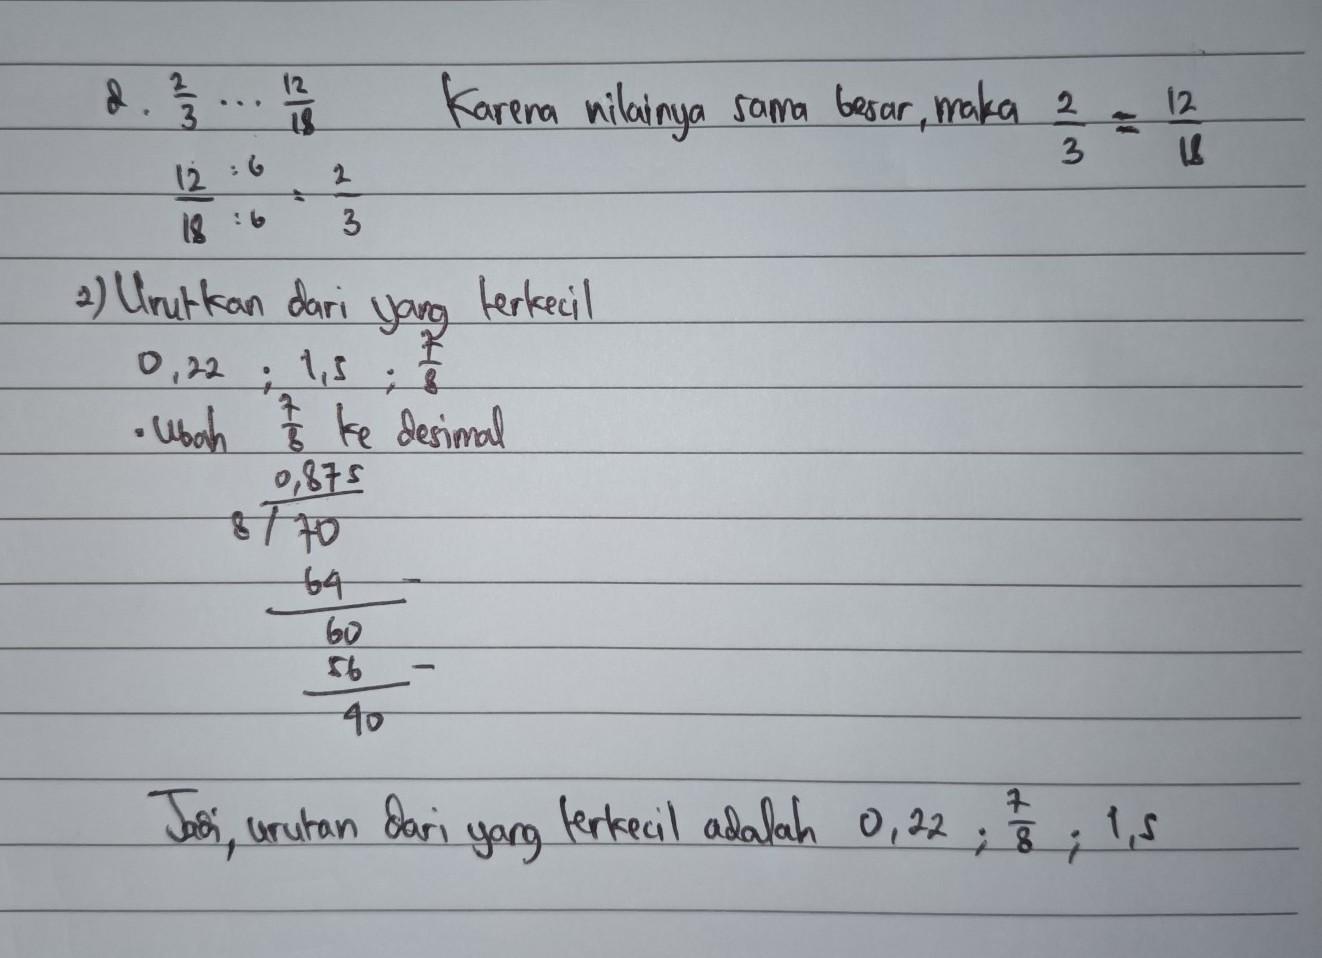 d. 2/3 ... 12/18 Karena nilainya sama besar, maka 2/3 = 12/18
12 : 6 / 18 : 6 = 2/3
2) Urutkan dari yang terkecil
0,22 ; 1,5 ; 7/8
• Ubah 7/8 ke desimal
0,875
8 / 70
64 -
60
56 -
40
Jadi, urutan dari yang terkecil adalah 0,22 ; 7/8 ; 1,5